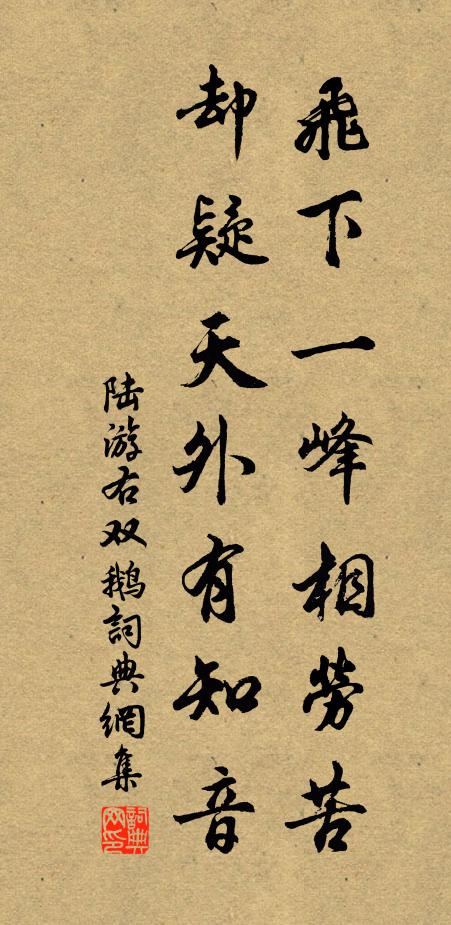 飛下一峰相勞苦
却疑天外有知音
陆游右双鵝詞典網集
詞典網印